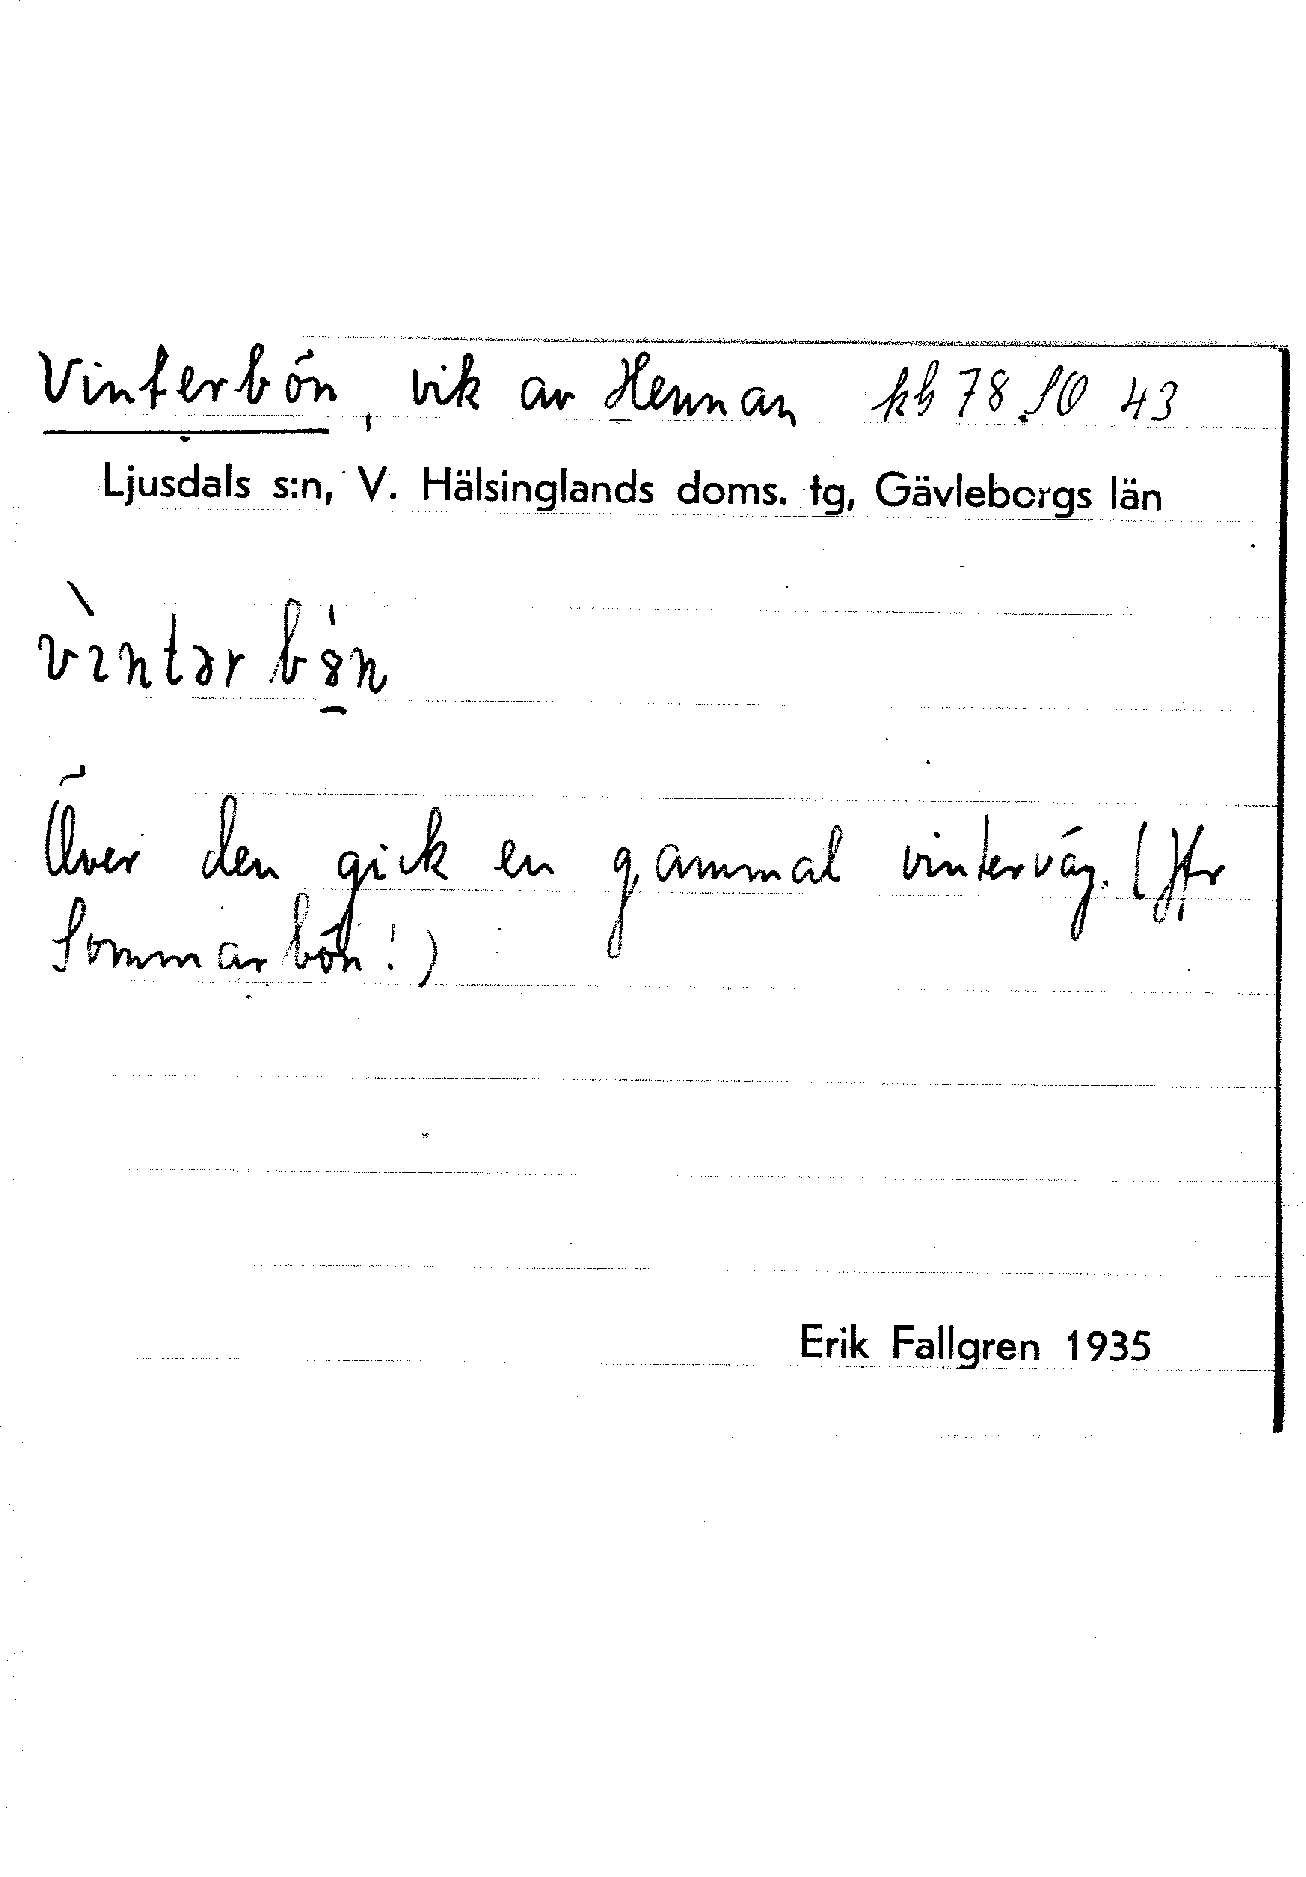 Vinterbön, vik av Hennan kb 78 SO 43
Ljusdals s:n, V. Hälsinglands doms. tg, Gävleborgs län
Över den gick en gammal winterväg. (Jfr
Sommarbön!)
Erik Fallgren 1935